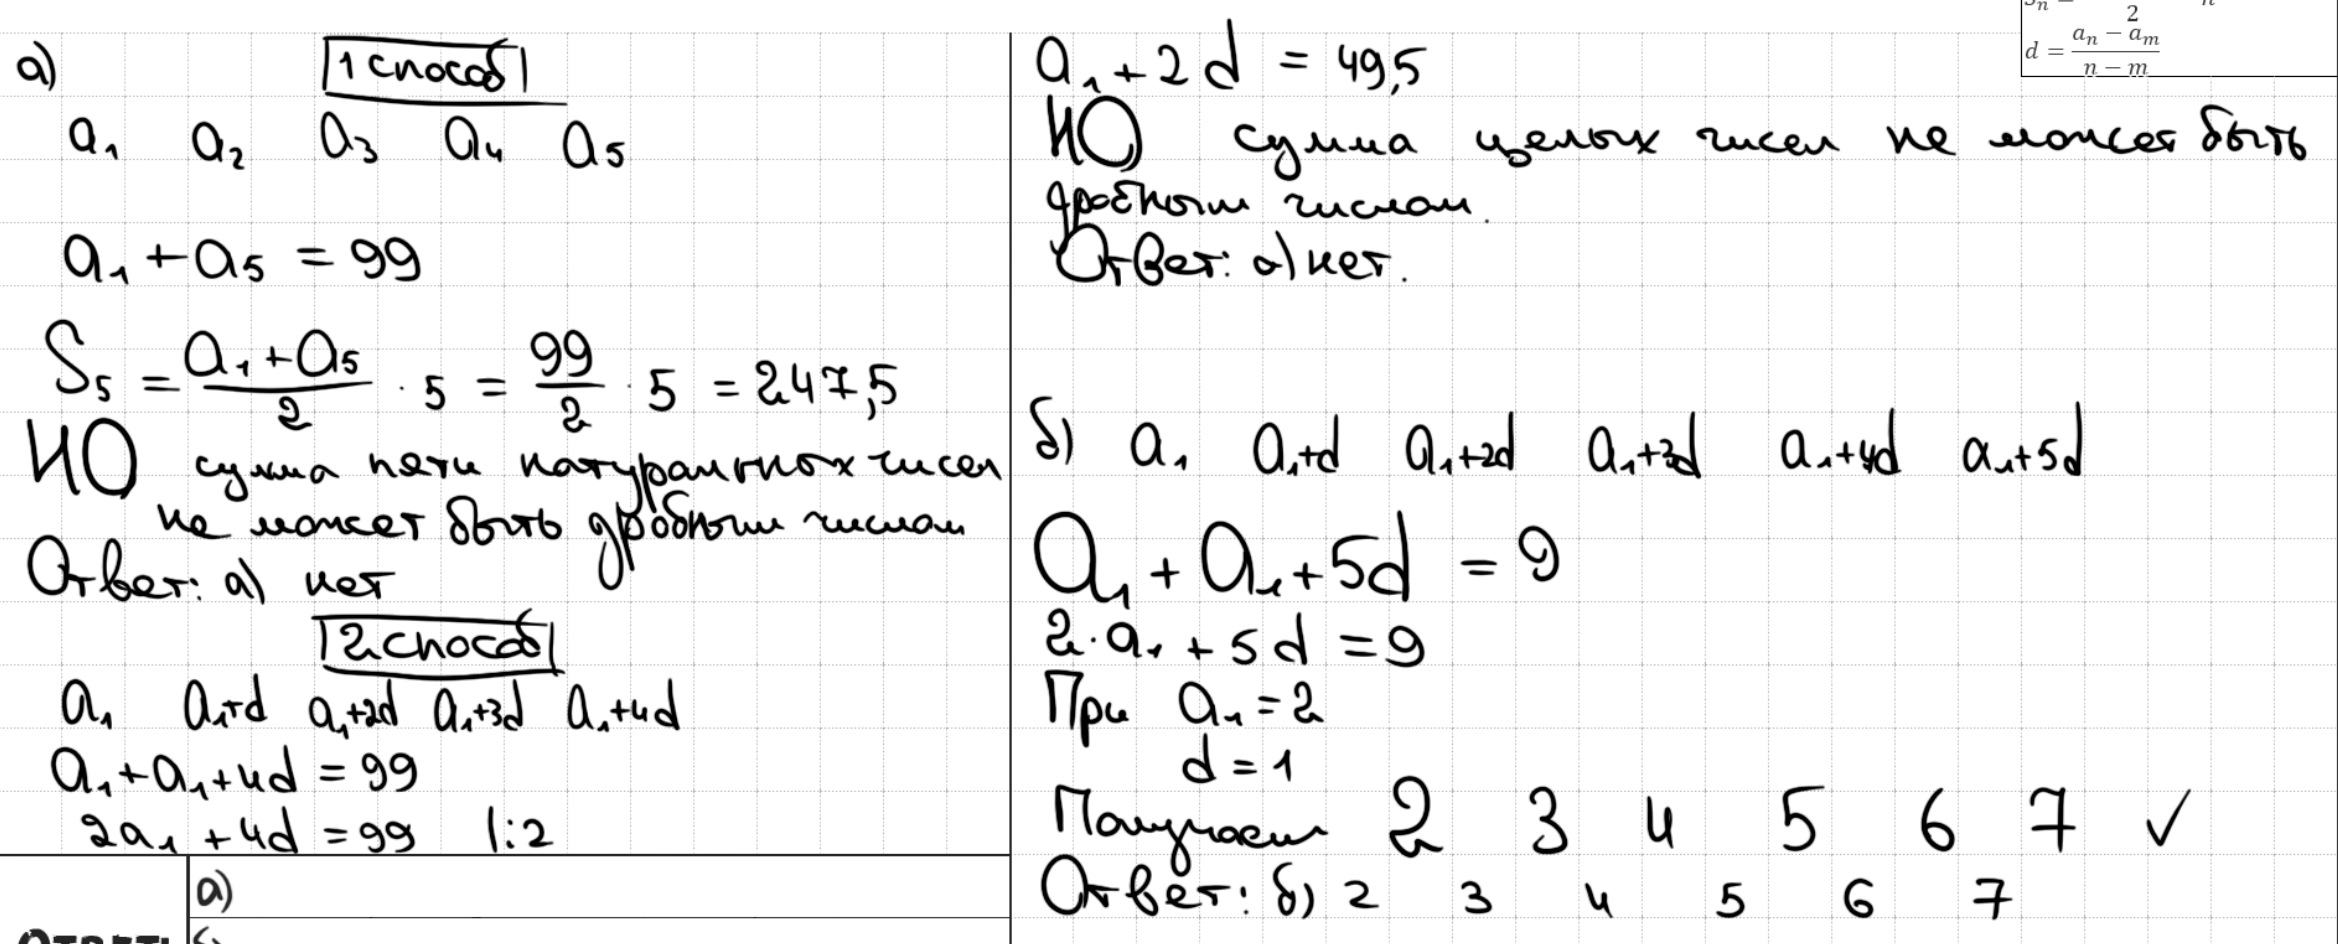 а) 1 способ
a₁ a₂ a₃ a₄ a₅
a₁ + a₅ = 99
S₅ = (a₁ + a₅)/2 · 5 = 99/2 · 5 = 247,5
НО сумма пяти натуральных чисел
не может быть дробным числом
Ответ: а) нет
2 способ
a₁ a₁+d a₁+2d a₁+3d a₁+4d
a₁ + a₁ + 4d = 99
2a₁ + 4d = 99 |:2
а)
ОТВЕТ:
a₁ + 2d = 49,5
НО сумма целых чисел не может быть
дробным числом.
Ответ: а) нет.
б) a₁ a₁+d a₁+2d a₁+3d a₁+4d a₁+5d
a₁ + a₁ + 5d = 9
2·a₁ + 5d = 9
При a₁ = 2
d = 1
Получаем 2 3 4 5 6 7 ✓
Ответ: б) 2 3 4 5 6 7
2
d = (aₙ − aₘ)/(n − m)